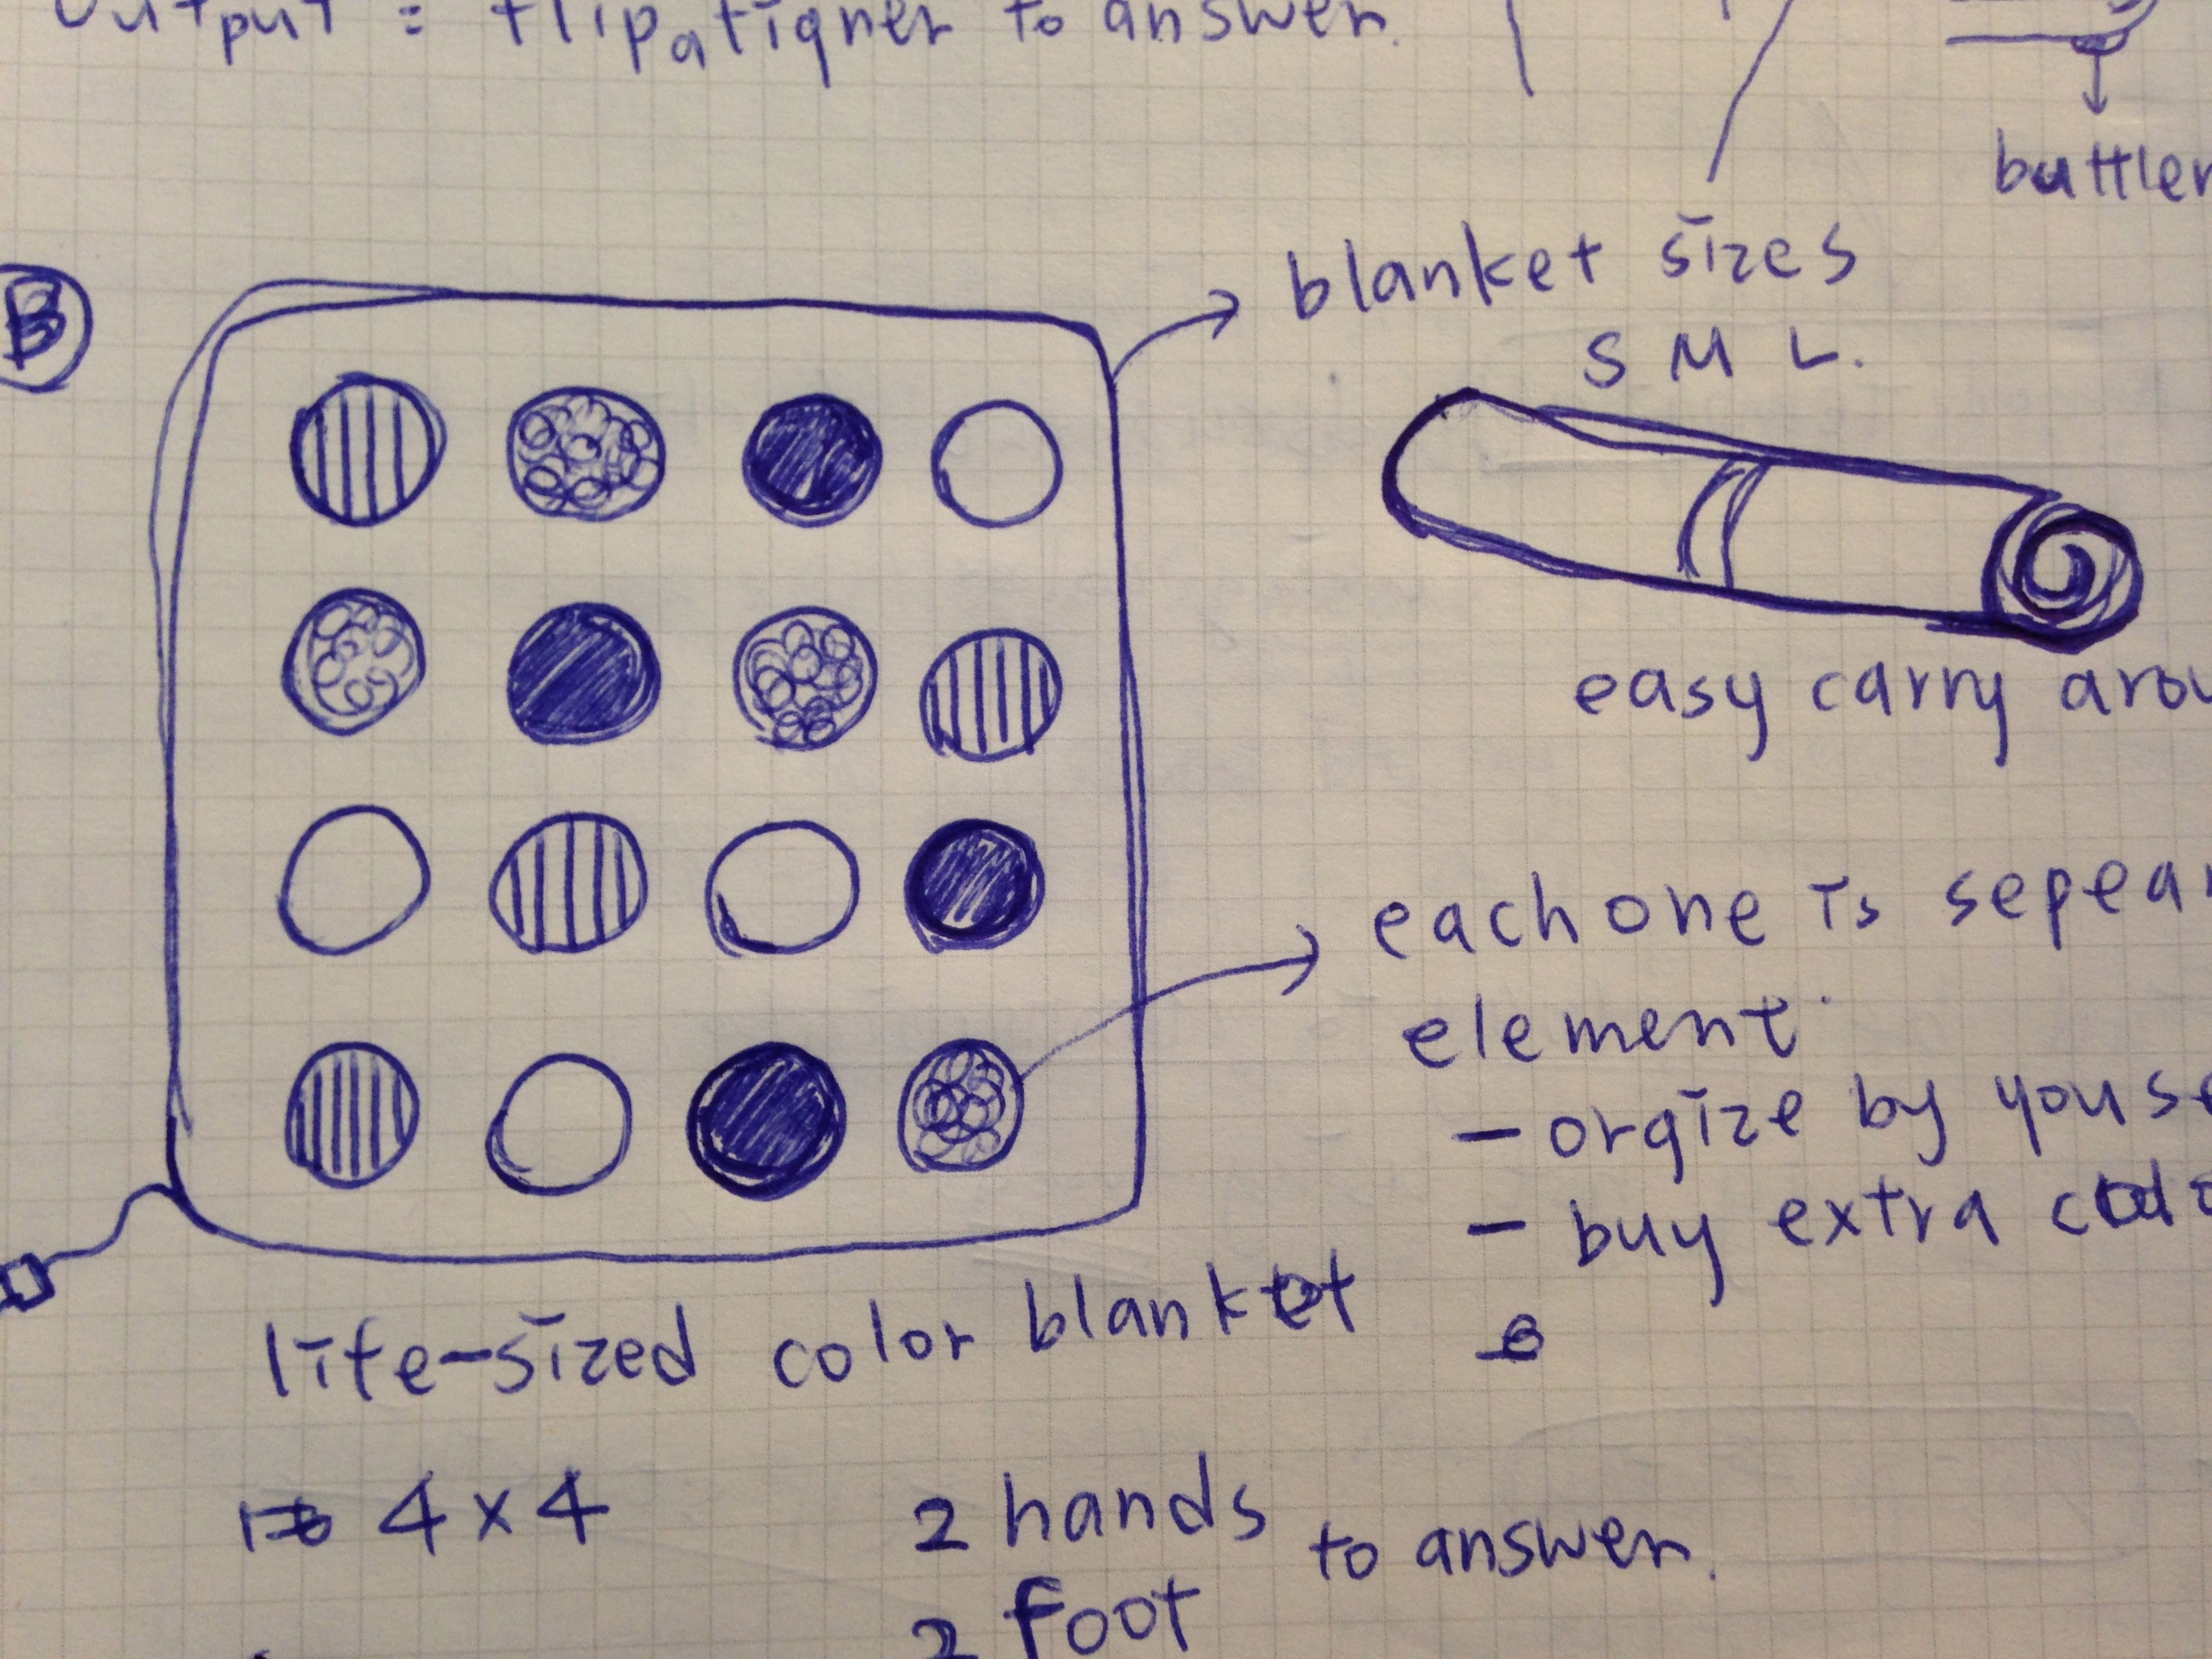 output = flipatiqner to answer.
buttler
B
blanket sizes
S M L.
easy carry arou
each one is sepear
element
- orgize by youse
- buy extra
life-sized color blanket
4 x 4
2 hands
to answer.
2 foot